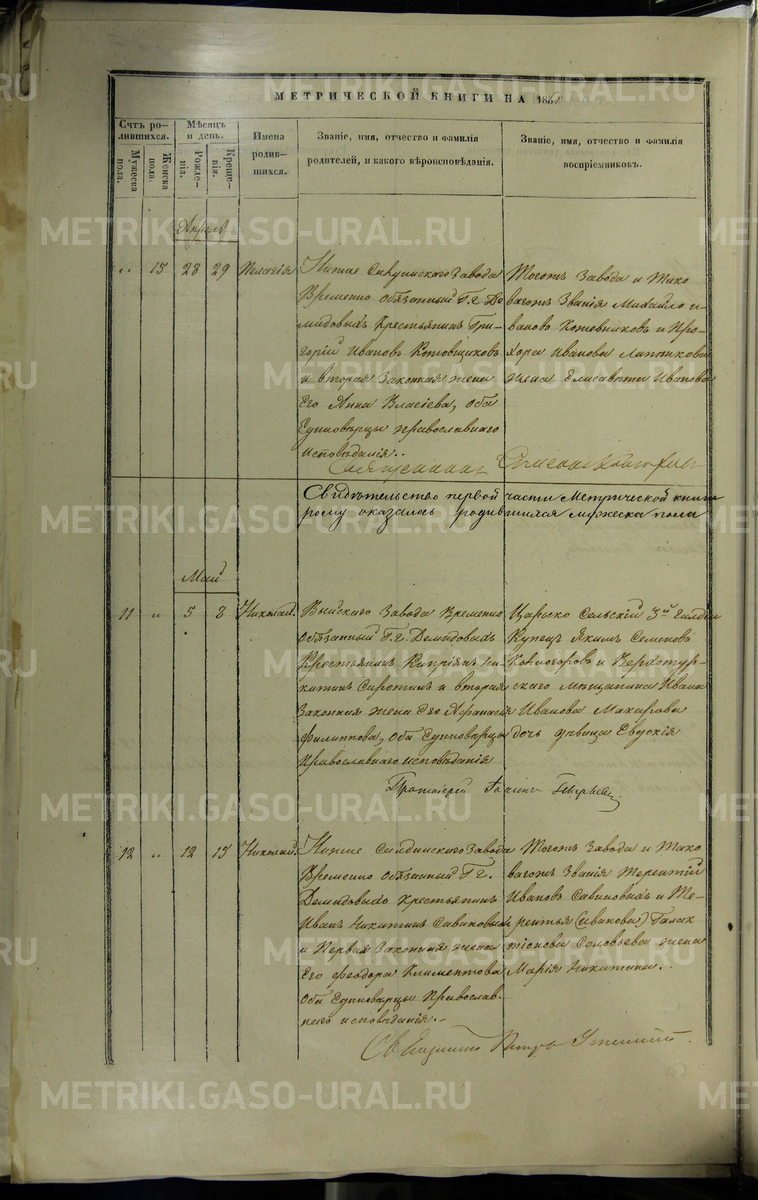 МЕТРИЧЕСКОЙ КНИГИ НА 186
Счетъ родившихся.
Мужеска пола.
Женска пола.
Мѣсяцъ и день.
Рожденія.
Крещенія.
Имена родившихся.
Званіе, имя, отчество и фамилія родителей, и какого вѣроисповѣданія.
Званіе, имя, отчество и фамилія воспріемниковъ.
Апрѣль
" 15 28 29 Пелагія
Нижне Завода
Временно обязанный Г.г. Де
мидовыхъ Крестьянинъ Гри-
горій Ивановъ
и вторая Законная жена
Его Анна Власіева, оба
Единовѣрцы православнаго
исповѣданія..
Тогожъ Завода и тако
вагожъ Званія Михайло И-
вановъ Кожевниковъ и Про-
хора Иванова Лаптякова
жена Елисавета Иванова
Священникъ
Свидѣтельство первой части Метрической книги
рому оказалось родившихся мужеска пола
Май
11 " 5 8 Николай.
Выйскаго Завода Временно
обязанный Г.г. Демидовыхъ
Крестьянинъ Кипріянъ Ни-
китинъ Сиротинъ и вторая
Законная жена Его Афанасія
Филиппова, оба Единовѣрцы
Православнаго исповѣданія
Царско Сельскій 3й гильдіи
Купецъ Якимъ Семеновъ
и Верхотур-
скаго мѣщанина Ивана
Иванова Макарова
дочь дѣвица Евдокія
Протоіерей Іоаннъ
12 " 12 15 Николай.
Нижне Салдинскаго Завода
Временно обязанный Г.г.
Демидовыхъ крестьянинъ
Иванъ Никитинъ Савиновыхъ
и Первая Законная жена
Его Феодора Климентова
оба Единовѣрцы Православ-
наго исповѣданія.-
Тогожъ Завода и тако
вагожъ Званія Терентій
Ивановъ Савиновыхъ и Те-
рентья (Иванова) Галак
тіонова Соловьева жена
Марія Никитина.
Петръ
METRIKI.GASO-URAL.RU